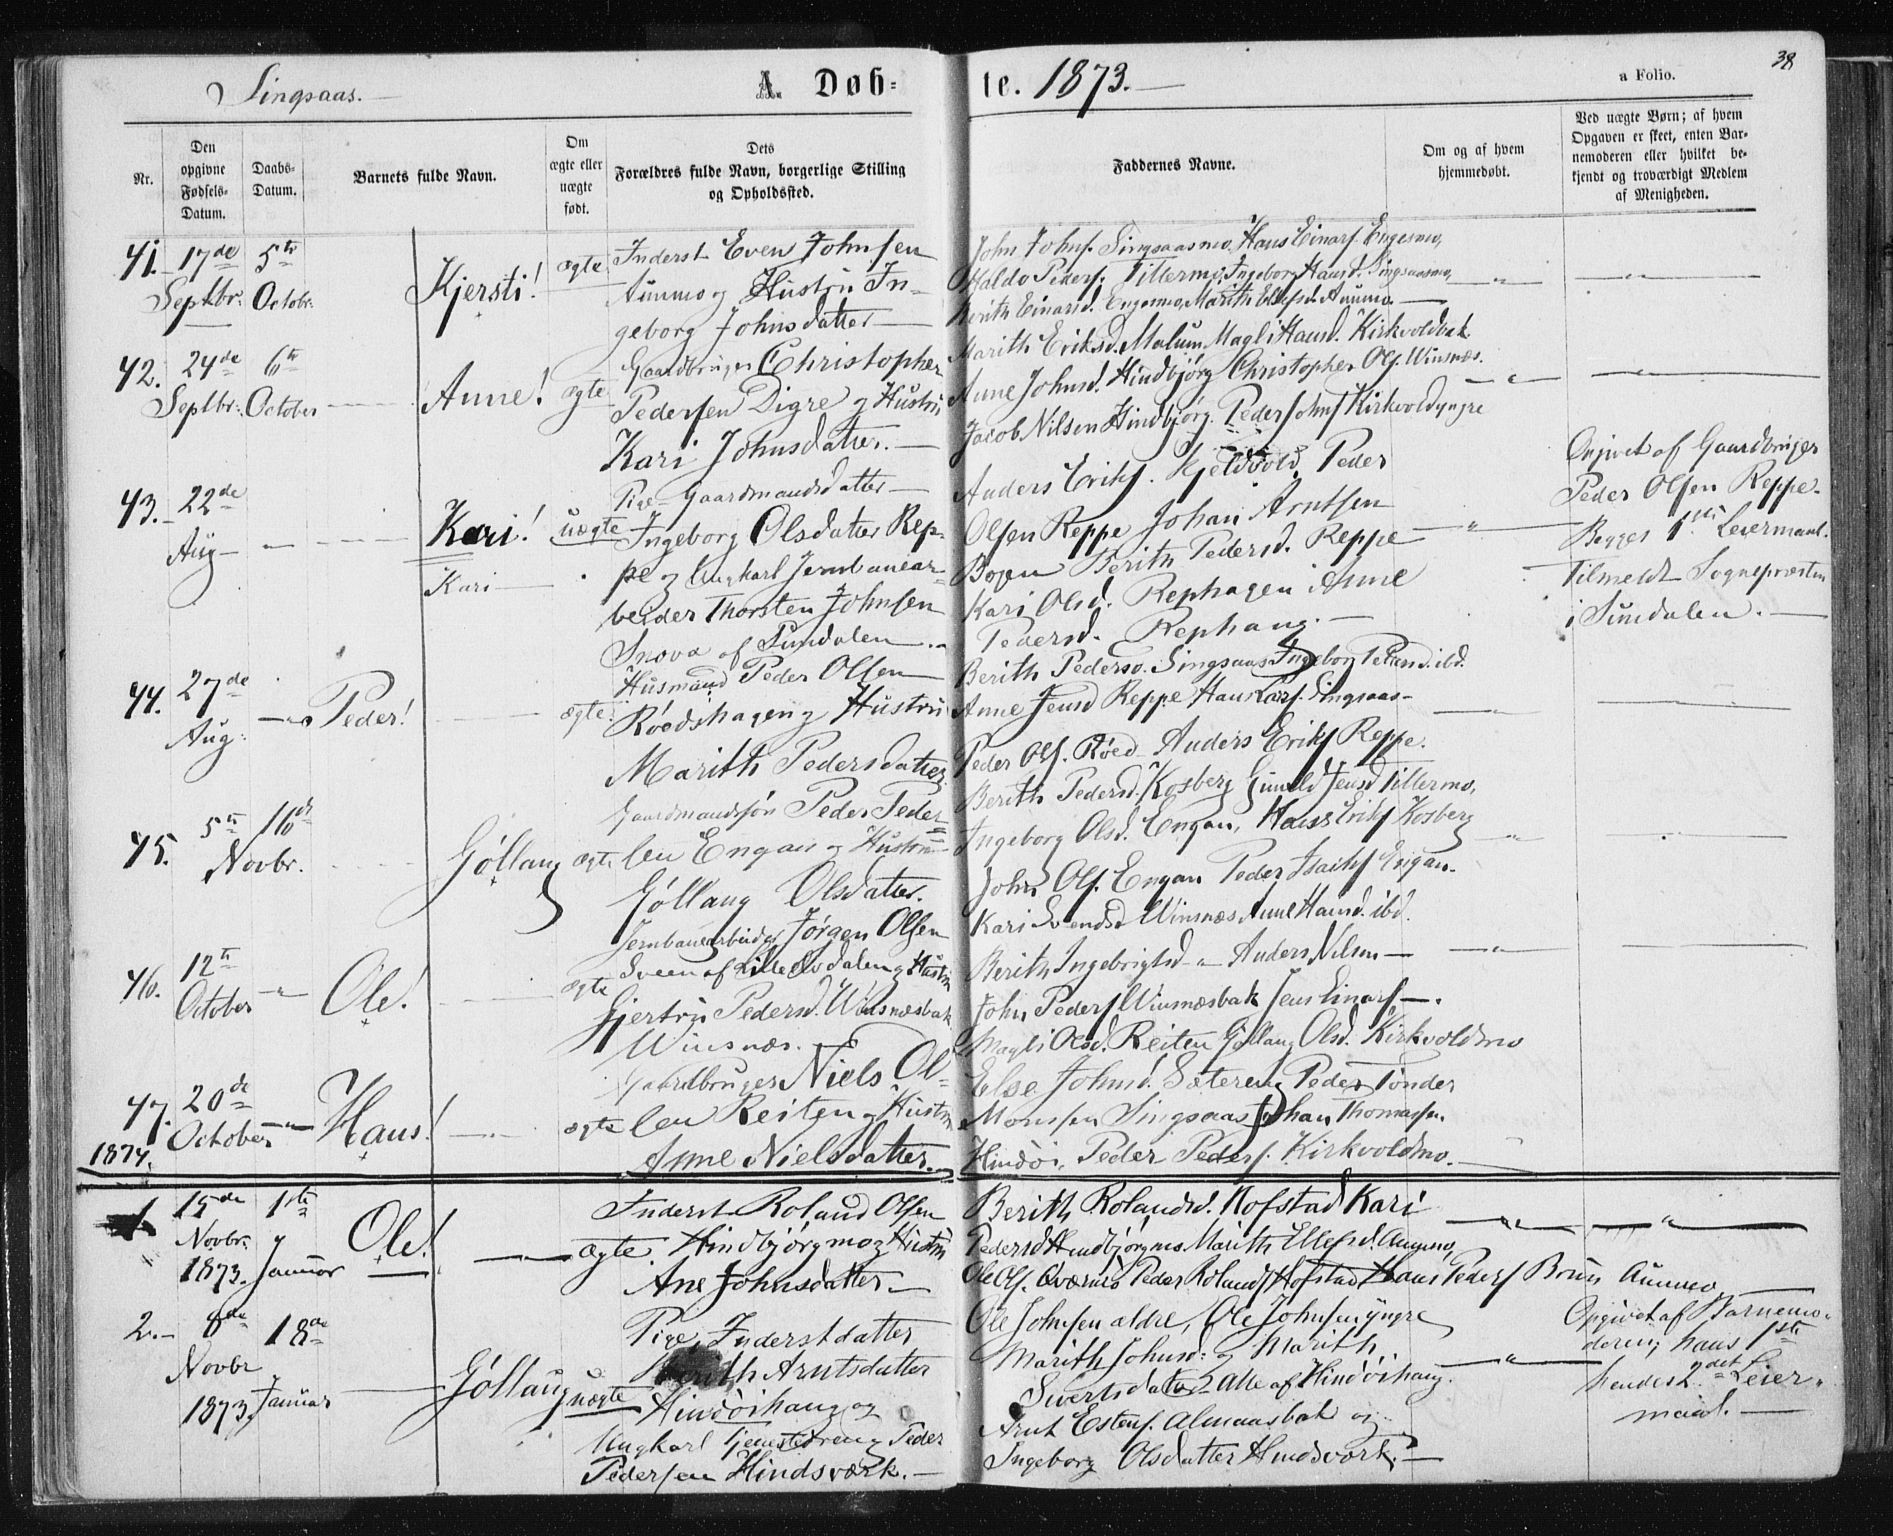 Singsaas.
A. Døb-
te. 1873.
a Folio.
38
Nr.
Den opgivne Fødsels-Datum.
Daabs-Datum.
Barnets fulde Navn.
Om ægte eller uægte født.
Dets Forældres fulde Navn, borgerlige Stilling og Opholdssted.
Faddernes Navne.
Om og af hvem hjemmedøbt.
Ved uægte Børn; af hvem Opgaven er skeet, enten Barnemoderen eller hvilket bekjendt og troværdigt Medlem af Menigheden.
41. 17de Septbr. 5te Octobr. Kjersti! ægte
Inderst Even Johnsen
Aunmo og Hustru In-
geborg Johnsdatter
John Johns. Singsaasmo, Hans Einars. Engesmo,
Haldo Peders. Tillermo, Ingeborg Hansd. Singsaasmo,
Berith Einarsd. Engesmo, Marith Ellefsd. Aunmo.
42. 24de Septbr. 6te October Anne! ægte
Gaardbruger Christopher
Pedersen Digre og Hustru
Kari Johnsdatter.
Marith Eriksd. Malum, Magli Hansd. Kirkvoldbak
Anne Johnsd. Hindbjørg Christopher Ols. Winsnæs.
Jacob Nilsen Hindbjørg. Peder Johns. Kirkvold yngre
43. 22de Aug. Kari! uægte
Kari
Pige Gaardmandsdatter
Ingeborg Olsdatter Rep-
pe og Ungkarl Jernbanear-
beider Thorsten Johnsen
Snova af Sundalen.
Anders Eriks. Kjeldvold, Peder
Olsen Reppe Johan Arntsen
Bogen Berith Pedersd. Reppe
Kari Olsd. Rephagen Anne
Pedersd. Rephaug.
Opgivet af Gaardbruger
Peder Olsen Reppe.
Begges 1ste Leiermaal.
Tilmeldt Sognepræsten
i Sundalen.
44. 27de Aug. Peder! ægte
Husmand Peder Olsen
Røedshagen og Hustru
Marith Pedersdatter
Berith Pedersd. Singsaas Ingeborg Pedersd. ibd.
Anne Jensd. Reppe Hans Lars. Singsaas
Peder Ols. Røed Anders Eriks. Reppe.
45. 5te 16de Novbr. Gøllaug ægte
Gaardmandssøn Peder Peder-
sen Engan og Hustru
Gøllaug Olsdatter.
Berith Pedersd. Kosberg Gunild Jensd. Tillermo,
Ingeborg Olsd. Engan, Hans Eriks. Kosberg
John Ols. Engan Peder Isachs. Engan.
46. 12te October Ole! ægte
Jernbanearbeider Jørgen Olsen
Sveen af Lille Elvdalen og Hustru
Gjertru Pedersd. Winsnæsbak
Winsnæs.
Kari Svendsd. Winsnæs Anne Hansd. ibd.
Berith Ingebrigtsd. Anders Nilsen
John Peders. Winsnæsbak Jens Einars.
47. 20de October Hans! ægte
Gaardbruger Niels Ol-
sen Reiten og Hustru
Anne Nielsdatter.
Magli Olsd. Reiten Gøllaug Olsd. Kirkvoldmo
Else Johnsd. Sætereng Peder Tønder
Monsen Singsaas Johan Thomassen
Hindøi, Peder Peders. Kirkvoldmo.
1874.
1 15de Novbr. 1873. 1ste Januar Ole! ægte
Inderst Roland Olsen
Hindbjørgmo og Hustru
Ane Johnsdatter
Berith Rolandsd. Hofstad Kari
Pedersd. Hindbjørgmo Marith Ellefsd. Aunmo,
Ole Ols. Qværnes Peder Rolands. Hofstad Hans Peders. Bruun Aunmo
2. 8de Novbr 1873 18de Januar Gøllaug uægte
Pige, Inderstdatter
Berith Arntsdatter
Hindøihaug og
Ungkarl Tjenestedreng Peder
Pedersen Hindsværk.
Ole Johnsen ældre, Ole Johnsen yngre
Marith Johnsd. og Marith
Sivertsdatter alle af Hindøihaug.
Arnt Estens. Almaasbak og
Ingeborg Olsdatter Hindsværk.
Opgivet af Barnemo-
deren; hans 1ste
hendes 2det Leier-
maal.